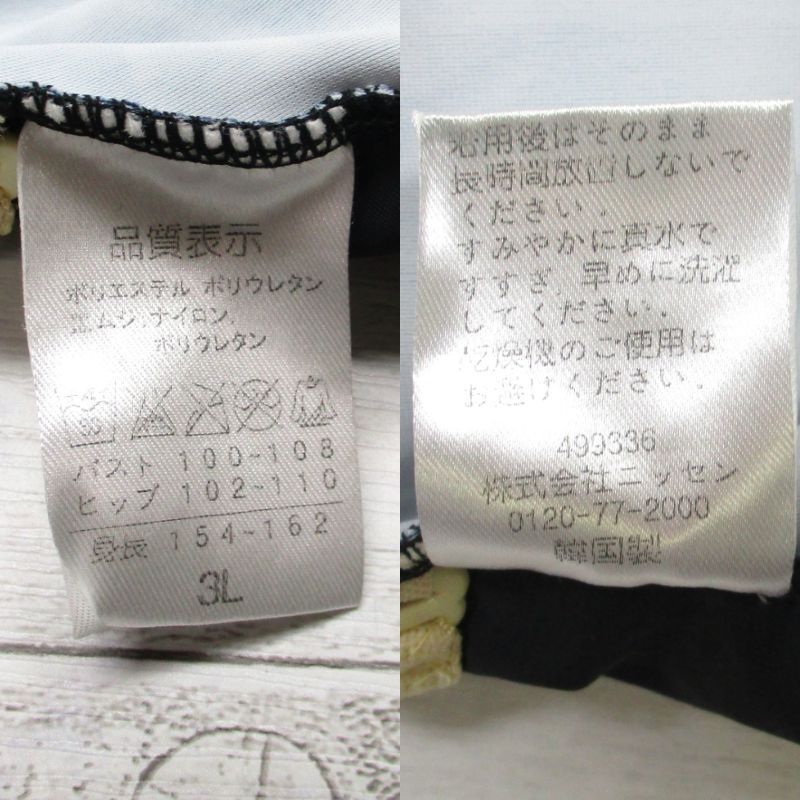 品質表示
ポリエステル ポリウレタン
ゴムシ,ナイロン,
ポリウレタン
バスト 100-108
ヒップ 102-110
身長 154-162
3L
着用後はそのまま
長時間放置しないで
ください.
すみやかに真水で
すすぎ,早めに洗濯
してください.
乾燥機のご使用は
お避けください.
499336
株式会社ニッセン
0120-77-2000
韓国製